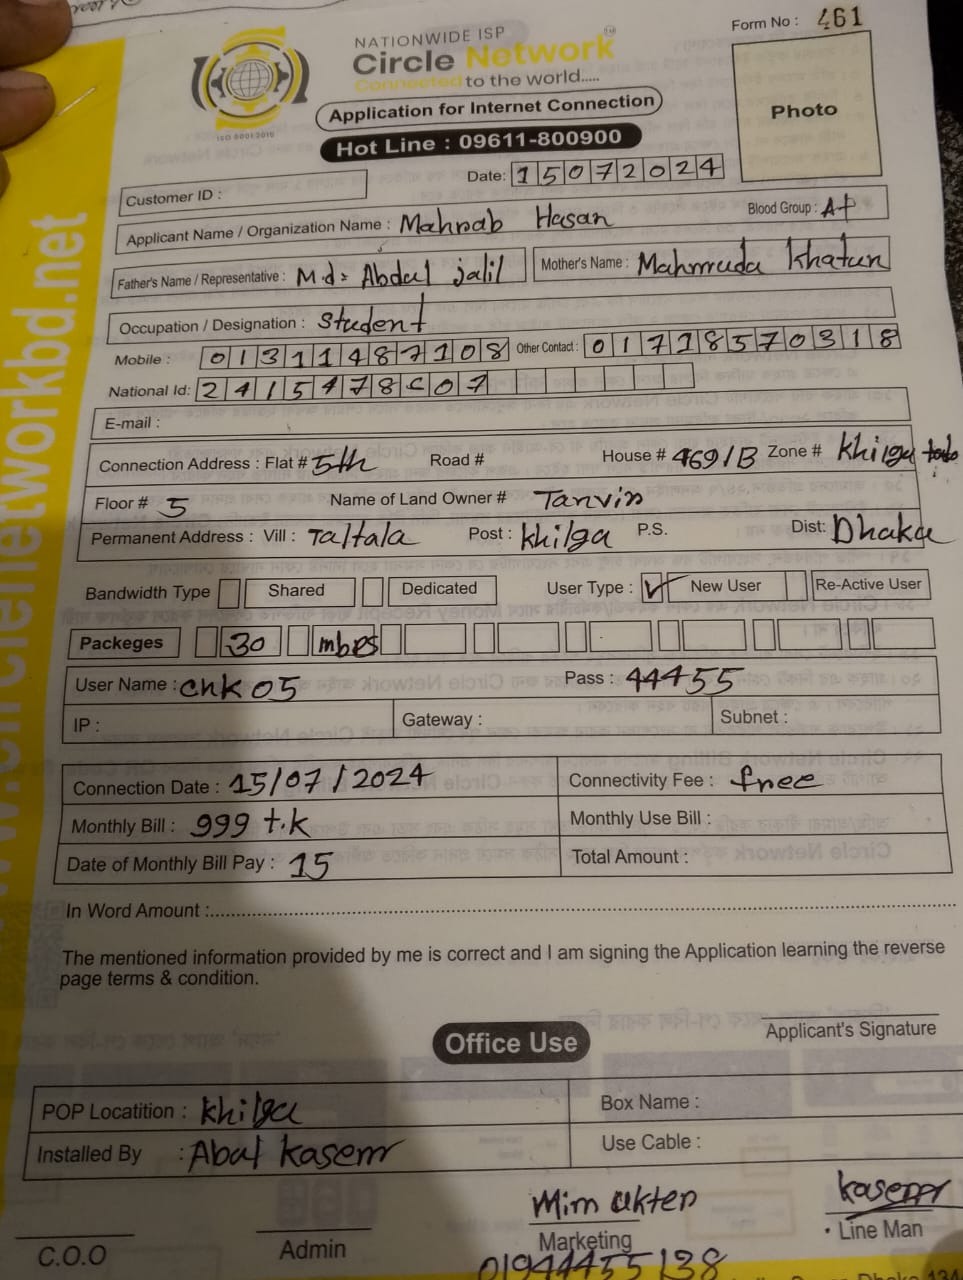 Form No : 461
NATIONWIDE ISP
Circle Network
Connected to the world.....
ISO 9001:2015
Application for Internet Connection
Hot Line : 09611-800900
Photo
Date: 15072024
Customer ID :
Applicant Name / Organization Name : Mahnab Hasan Blood Group : A+
Father's Name / Representative : M.d= Abdul jalil Mother's Name : Mahmuda Khatun
Occupation / Designation : Student
Mobile : 01311487108 Other Contact : 01718570318
National Id: 2415478 07
E-mail :
Connection Address : Flat # 5th Road # House # 469/B Zone # Khilga
Floor # 5 Name of Land Owner # Tanvin
Permanent Address : Vill : Taltala Post : Khilga P.S. Dist: Dhaka
Bandwidth Type Shared Dedicated User Type : New User Re-Active User
Packeges 30 mbps
User Name : chk05 Pass : 44455
IP : Gateway : Subnet :
Connection Date : 15/07/2024 Connectivity Fee : free
Monthly Bill : 999 t.k Monthly Use Bill :
Date of Monthly Bill Pay : 15 Total Amount :
In Word Amount :
The mentioned information provided by me is correct and I am signing the Application learning the reverse
page terms & condition.
Applicant's Signature
Office Use
POP Locatition : Khilga Box Name :
Installed By : Abul Kasem Use Cable :
Mim akter Kasem
C.O.O Admin Marketing Line Man
01944455138
www.circlenetworkbd.net